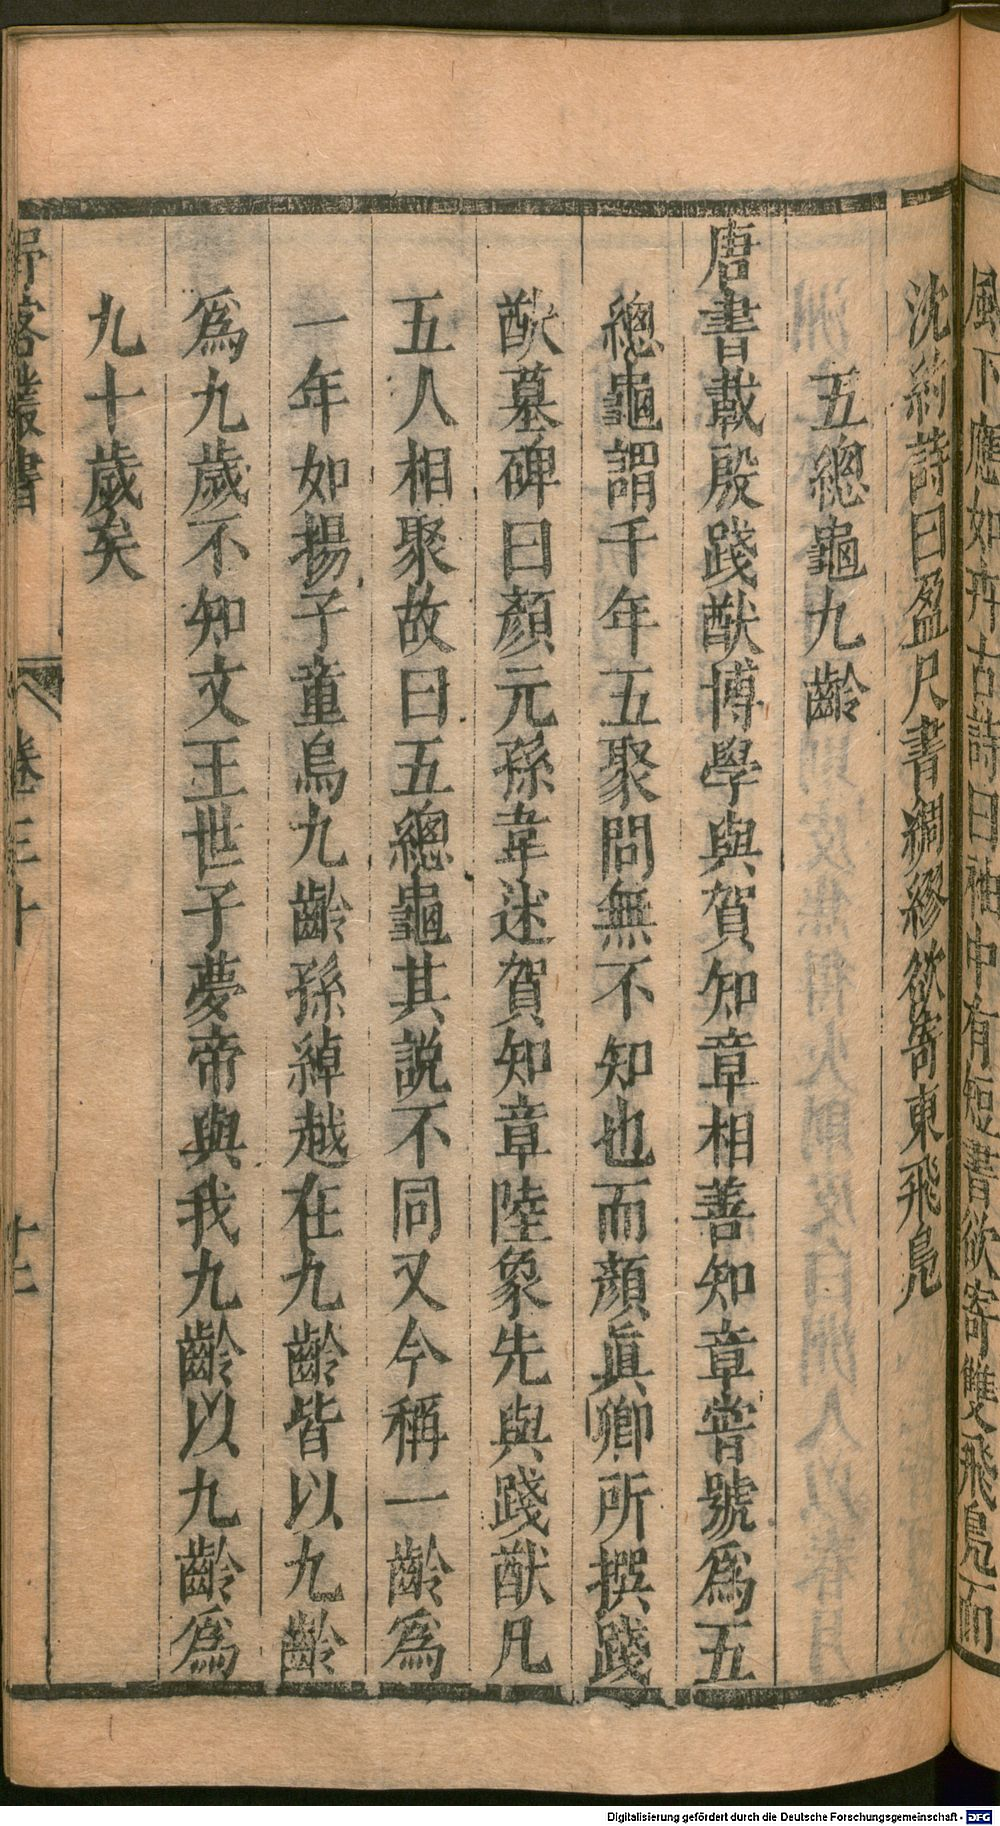 風下應如卉古詩曰袖中有短書欲寄雙飛鳧而
沈約詩曰盈尺書綢繆欲寄東飛鳧
五總龜九齡
唐書載殷踐猷博學與賀知章相善知章嘗號爲五
總龜謂千年五聚問無不知也而顏眞卿所撰踐
猷墓碑曰顏元孫韋述賀知章陸象先與踐猷凡
五人相聚故曰五總龜其説不同又今稱一齡爲
一年如揚子童烏九齡孫綽越在九齡皆以九齡
爲九歲不知文王世子夢帝與我九齡以九齡爲
九十歲矣
野客叢書 卷三十 十二
Digitalisierung gefördert durch die Deutsche Forschungsgemeinschaft - DFG